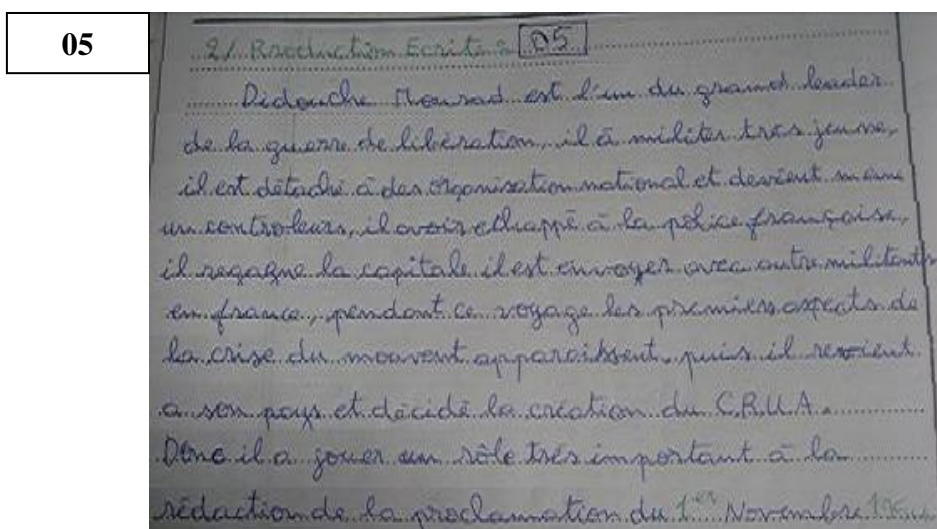 05
2/ Production Ecrite : 05
Didouche Mourad est l'un du grands leader
de la guerre de libération, il à militer tres jeune,
il est détaché à des organisation national et devient meme
un controleurs, il avoir echappé à la police française,
il regagne la capitale il est envoyer avec autre militants
en france, pendant ce voyage les premiers aspects de
la crise du mouvent apparaissent, puis il revient
a son pays et décidé la création du C.R.U.A.
Donc il a jouer un rôle trés important à la
rédaction de la proclamation du 1er Novembre